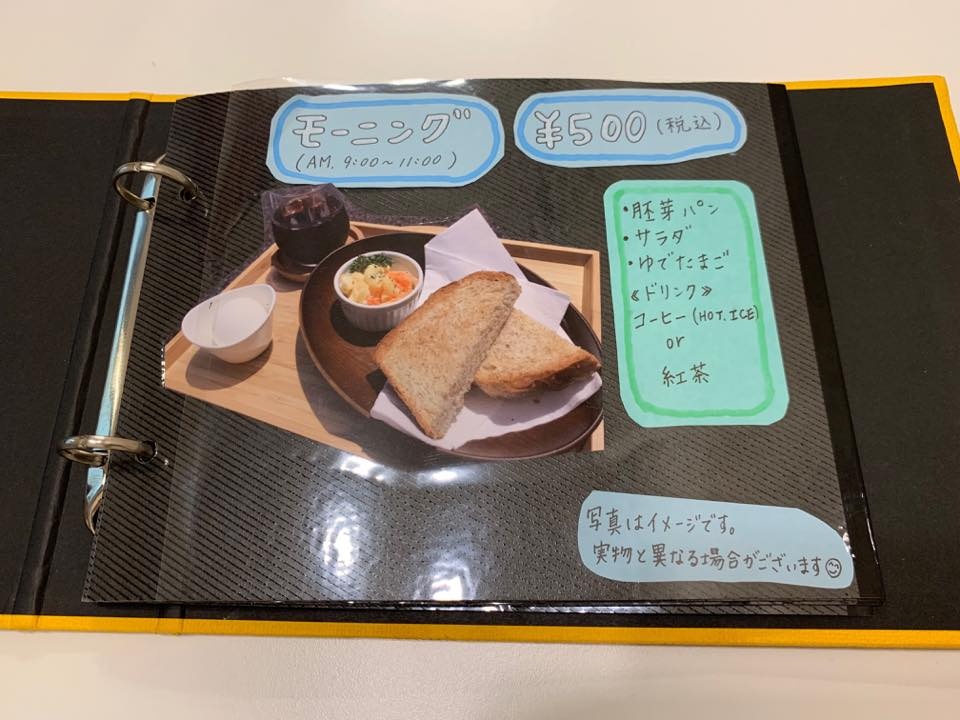 モーニング
(AM. 9:00～11:00)
¥500(税込)
・胚芽パン
・サラダ
・ゆでたまご
《ドリンク》
コーヒー(HOT.ICE)
or
紅茶
写真はイメージです。
実物と異なる場合がございます😊